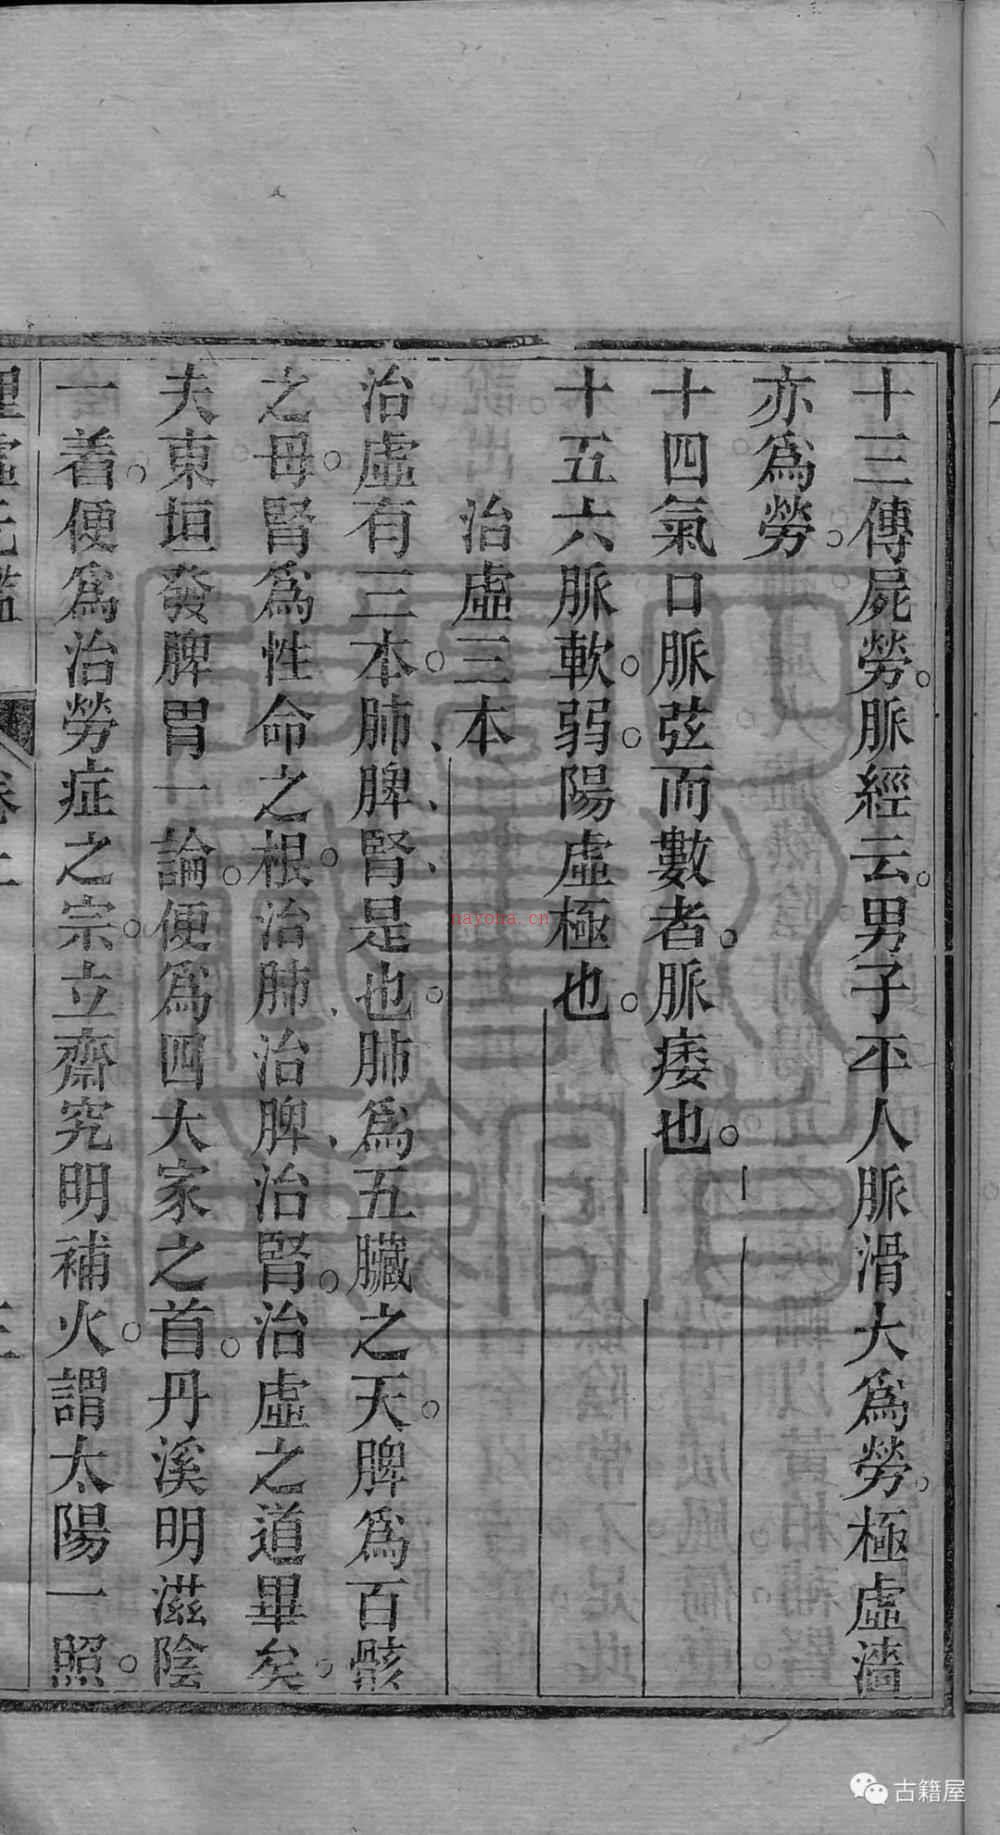 十三傳屍勞。脈經云。男子平人脈滑大爲勞。極虛濇
亦爲勞。
十四氣口脈弦而數者。脈痿也。
十五六脈軟。弱。陽虛極也。
治虛三本
治虛有三本。肺、脾、腎、是也。肺爲五臟之天。脾爲百骸
之母。腎爲性命之根。治肺、治脾、治腎。治虛之道畢矣。
夫東垣發脾胃一論。便爲四大家之首。丹溪明滋陰
一着。便爲治勞症之宗。立齋究明補火。謂太陽一照。
nayona.cn
古籍屋